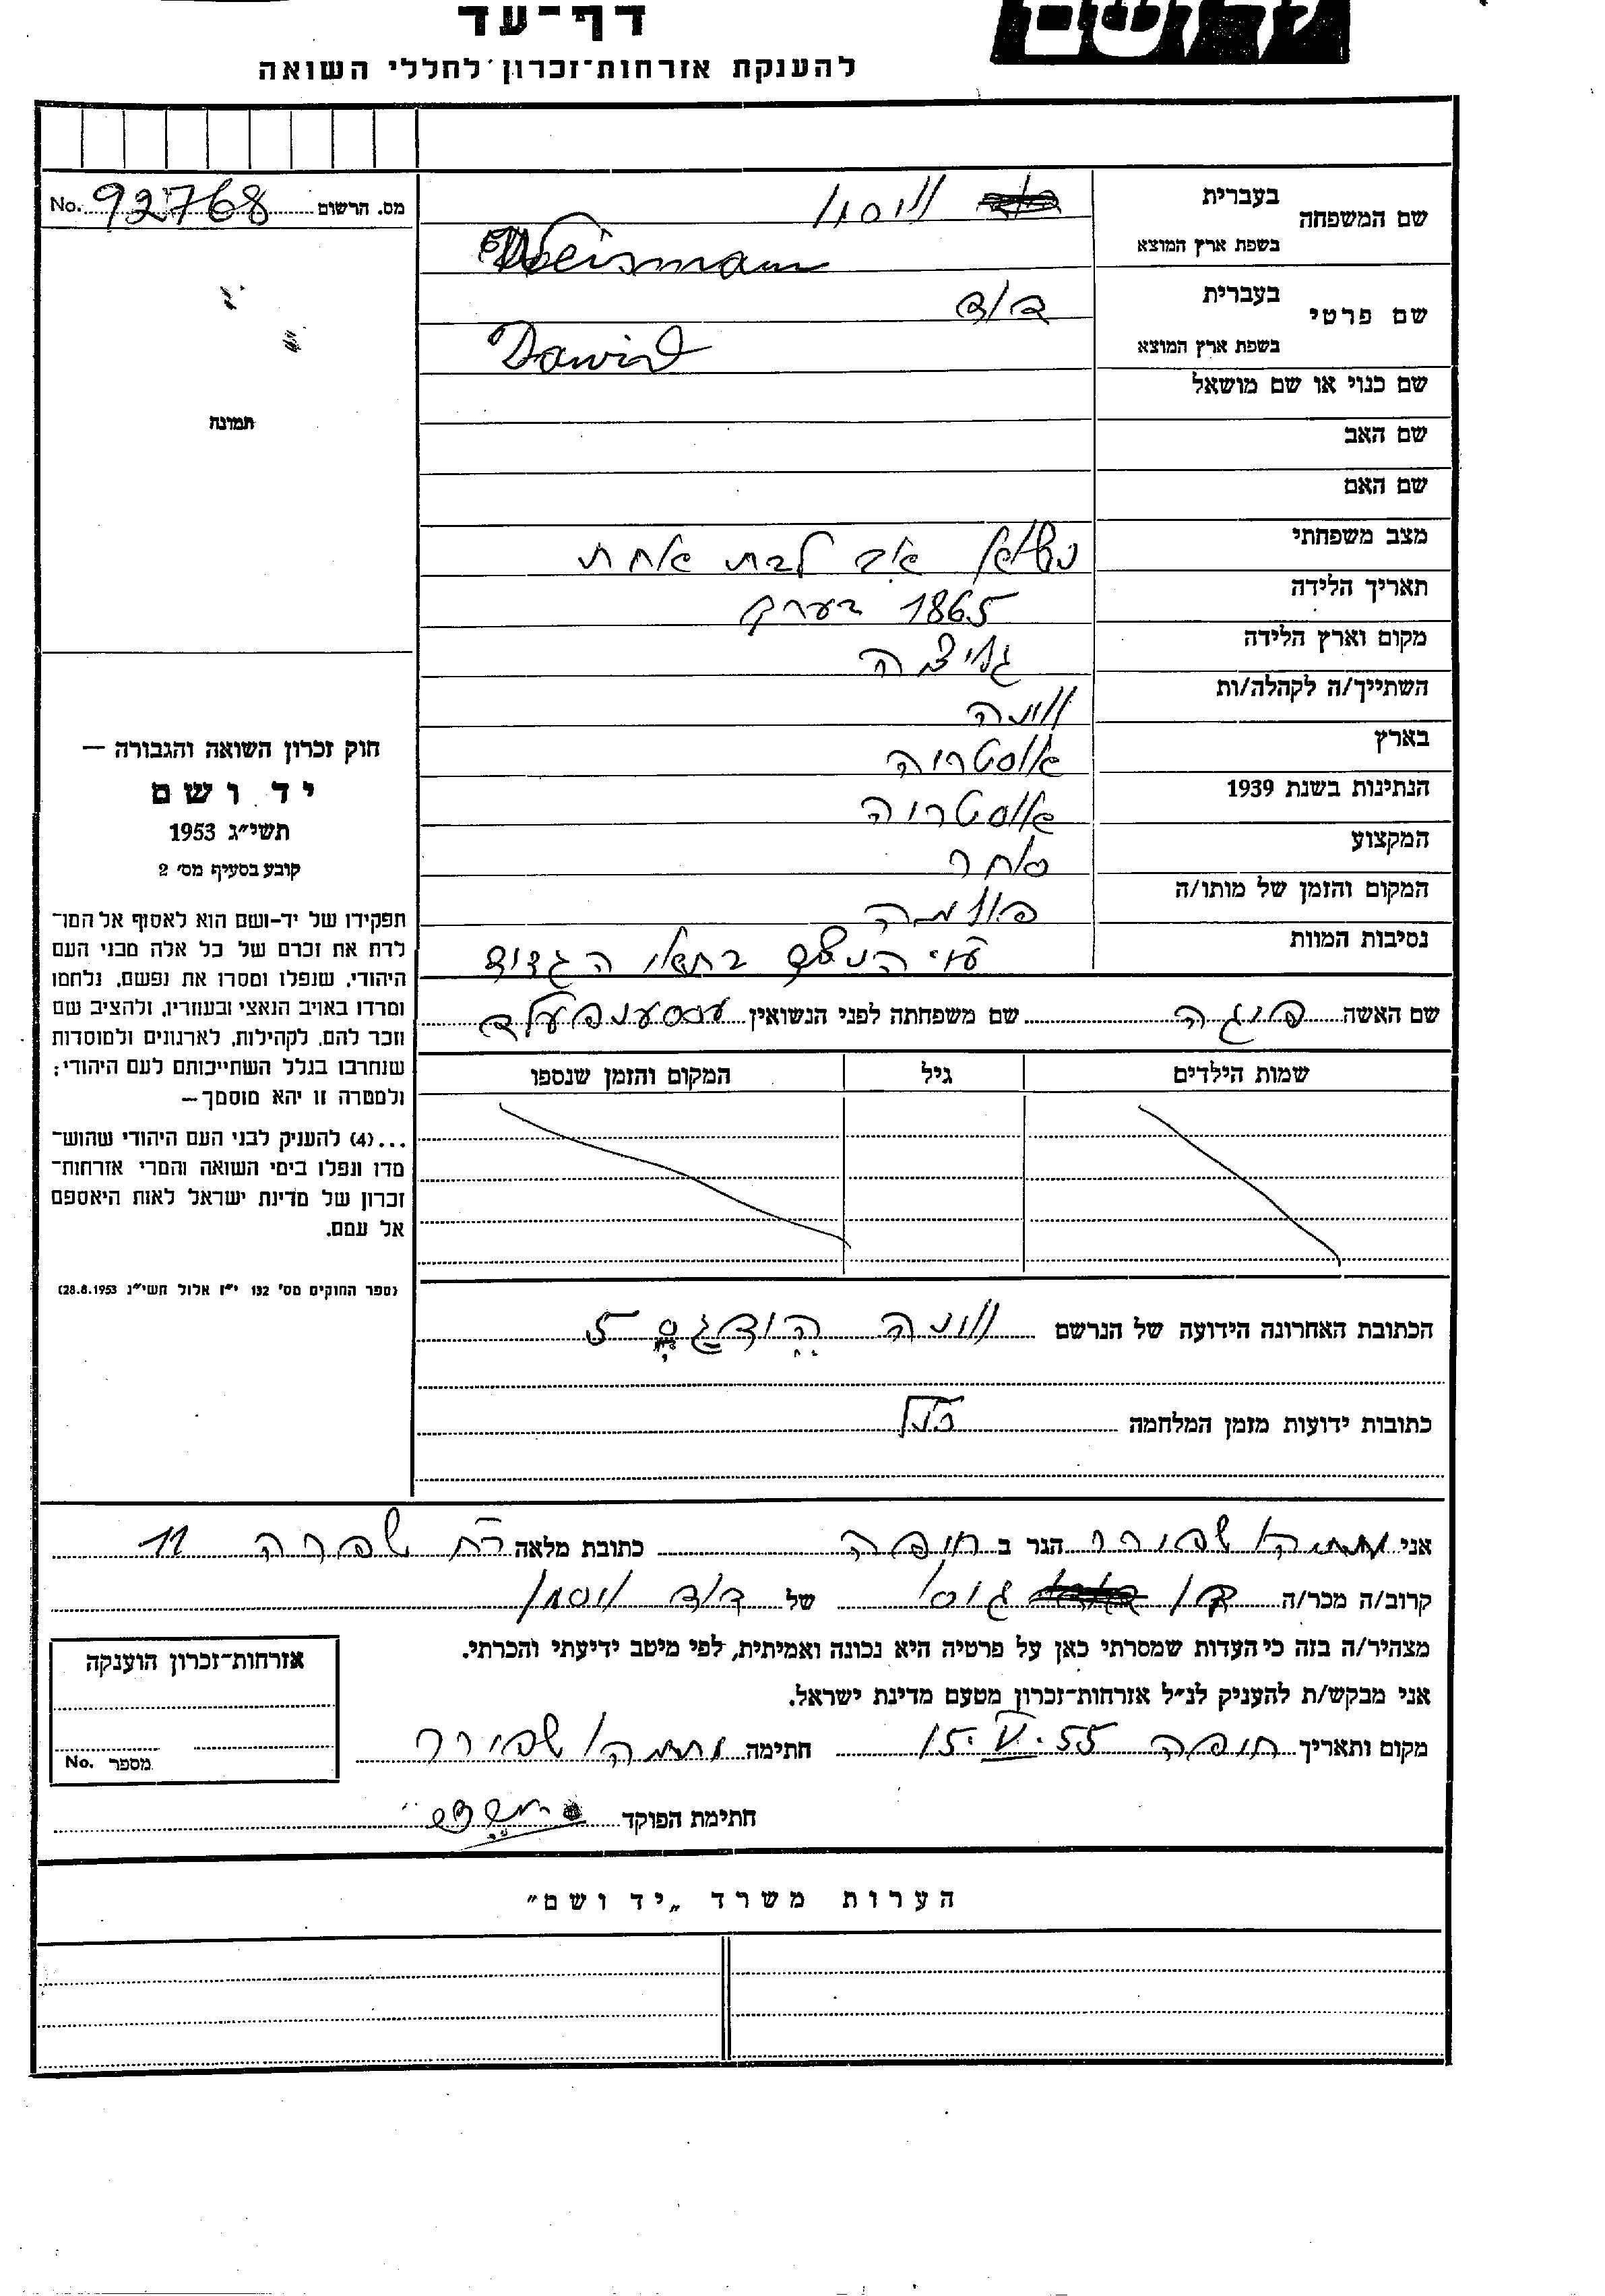 דף־עד
להענקת אזרחות־זכרון לחללי השואה
מס. הרשום 92768 No.
תמונה
שם המשפחה
בעברית ויסמן
בשפת ארץ המוצא Weismann
שם פרטי
בעברית דוד
בשפת ארץ המוצא Dawid
שם כנוי או שם מושאל
שם האב
שם האם
מצב משפחתי נשוא אב לבת אחת
תאריך הלידה 1865 בערך
מקום וארץ הלידה גליציה
השתייך/ה לקהלה/ות ווינה
בארץ אוסטריה
הנתינות בשנת 1939 אוסטריה
המקצוע סוחר
המקום והזמן של מותו/ה
נסיבות המוות
שם האשה פייגה שם משפחתה לפני הנשואין
שמות הילדים גיל המקום והזמן שנספו
חוק זכרון השואה והגבורה —
יד ושם
תשי״ג 1953
קובע בסעיף מס׳ 2
תפקידו של יד-ושם הוא לאסוף אל המו־
לדת את זכרם של כל אלה מבני העם
היהודי, שנפלו ומסרו את נפשם, נלחמו
ומרדו באויב הנאצי ובעוזריו, ולהציב שם
וזכר להם, לקהילות, לארגונים ולמוסדות
שנחרבו בגלל השתייכותם לעם היהודי;
ולמטרה זו יהא מוסמך—
...(4) להעניק לבני העם היהודי שהוש־
מדו ונפלו בימי השואה והמרי אזרחות־
זכרון של מדינת ישראל לאות היאספם
אל עמם.
(ספר החוקים מס׳ 132 י״ז אלול תשי״ג 28.8.1953)
הכתובת האחרונה הידועה של הנרשם ווינה 5
כתובות ידועות מזמן המלחמה כנ״ל
אני שפירר הגר ב חיפה כתובת מלאה רח שפרה 11
קרוב/ה מכר/ה בן גיסו של דוד ויסמן
מצהיר/ה בזה כי העדות שמסרתי כאן על פרטיה היא נכונה ואמיתית, לפי מיטב ידיעתי והכרתי.
אני מבקש/ת להעניק לנ״ל אזרחות־זכרון מטעם מדינת ישראל.
מקום ותאריך חיפה 15.V.55 חתימה שפירר
חתימת הפוקד
אזרחות־זכרון הוענקה
מספר No.
הערות משרד „יד ושם״